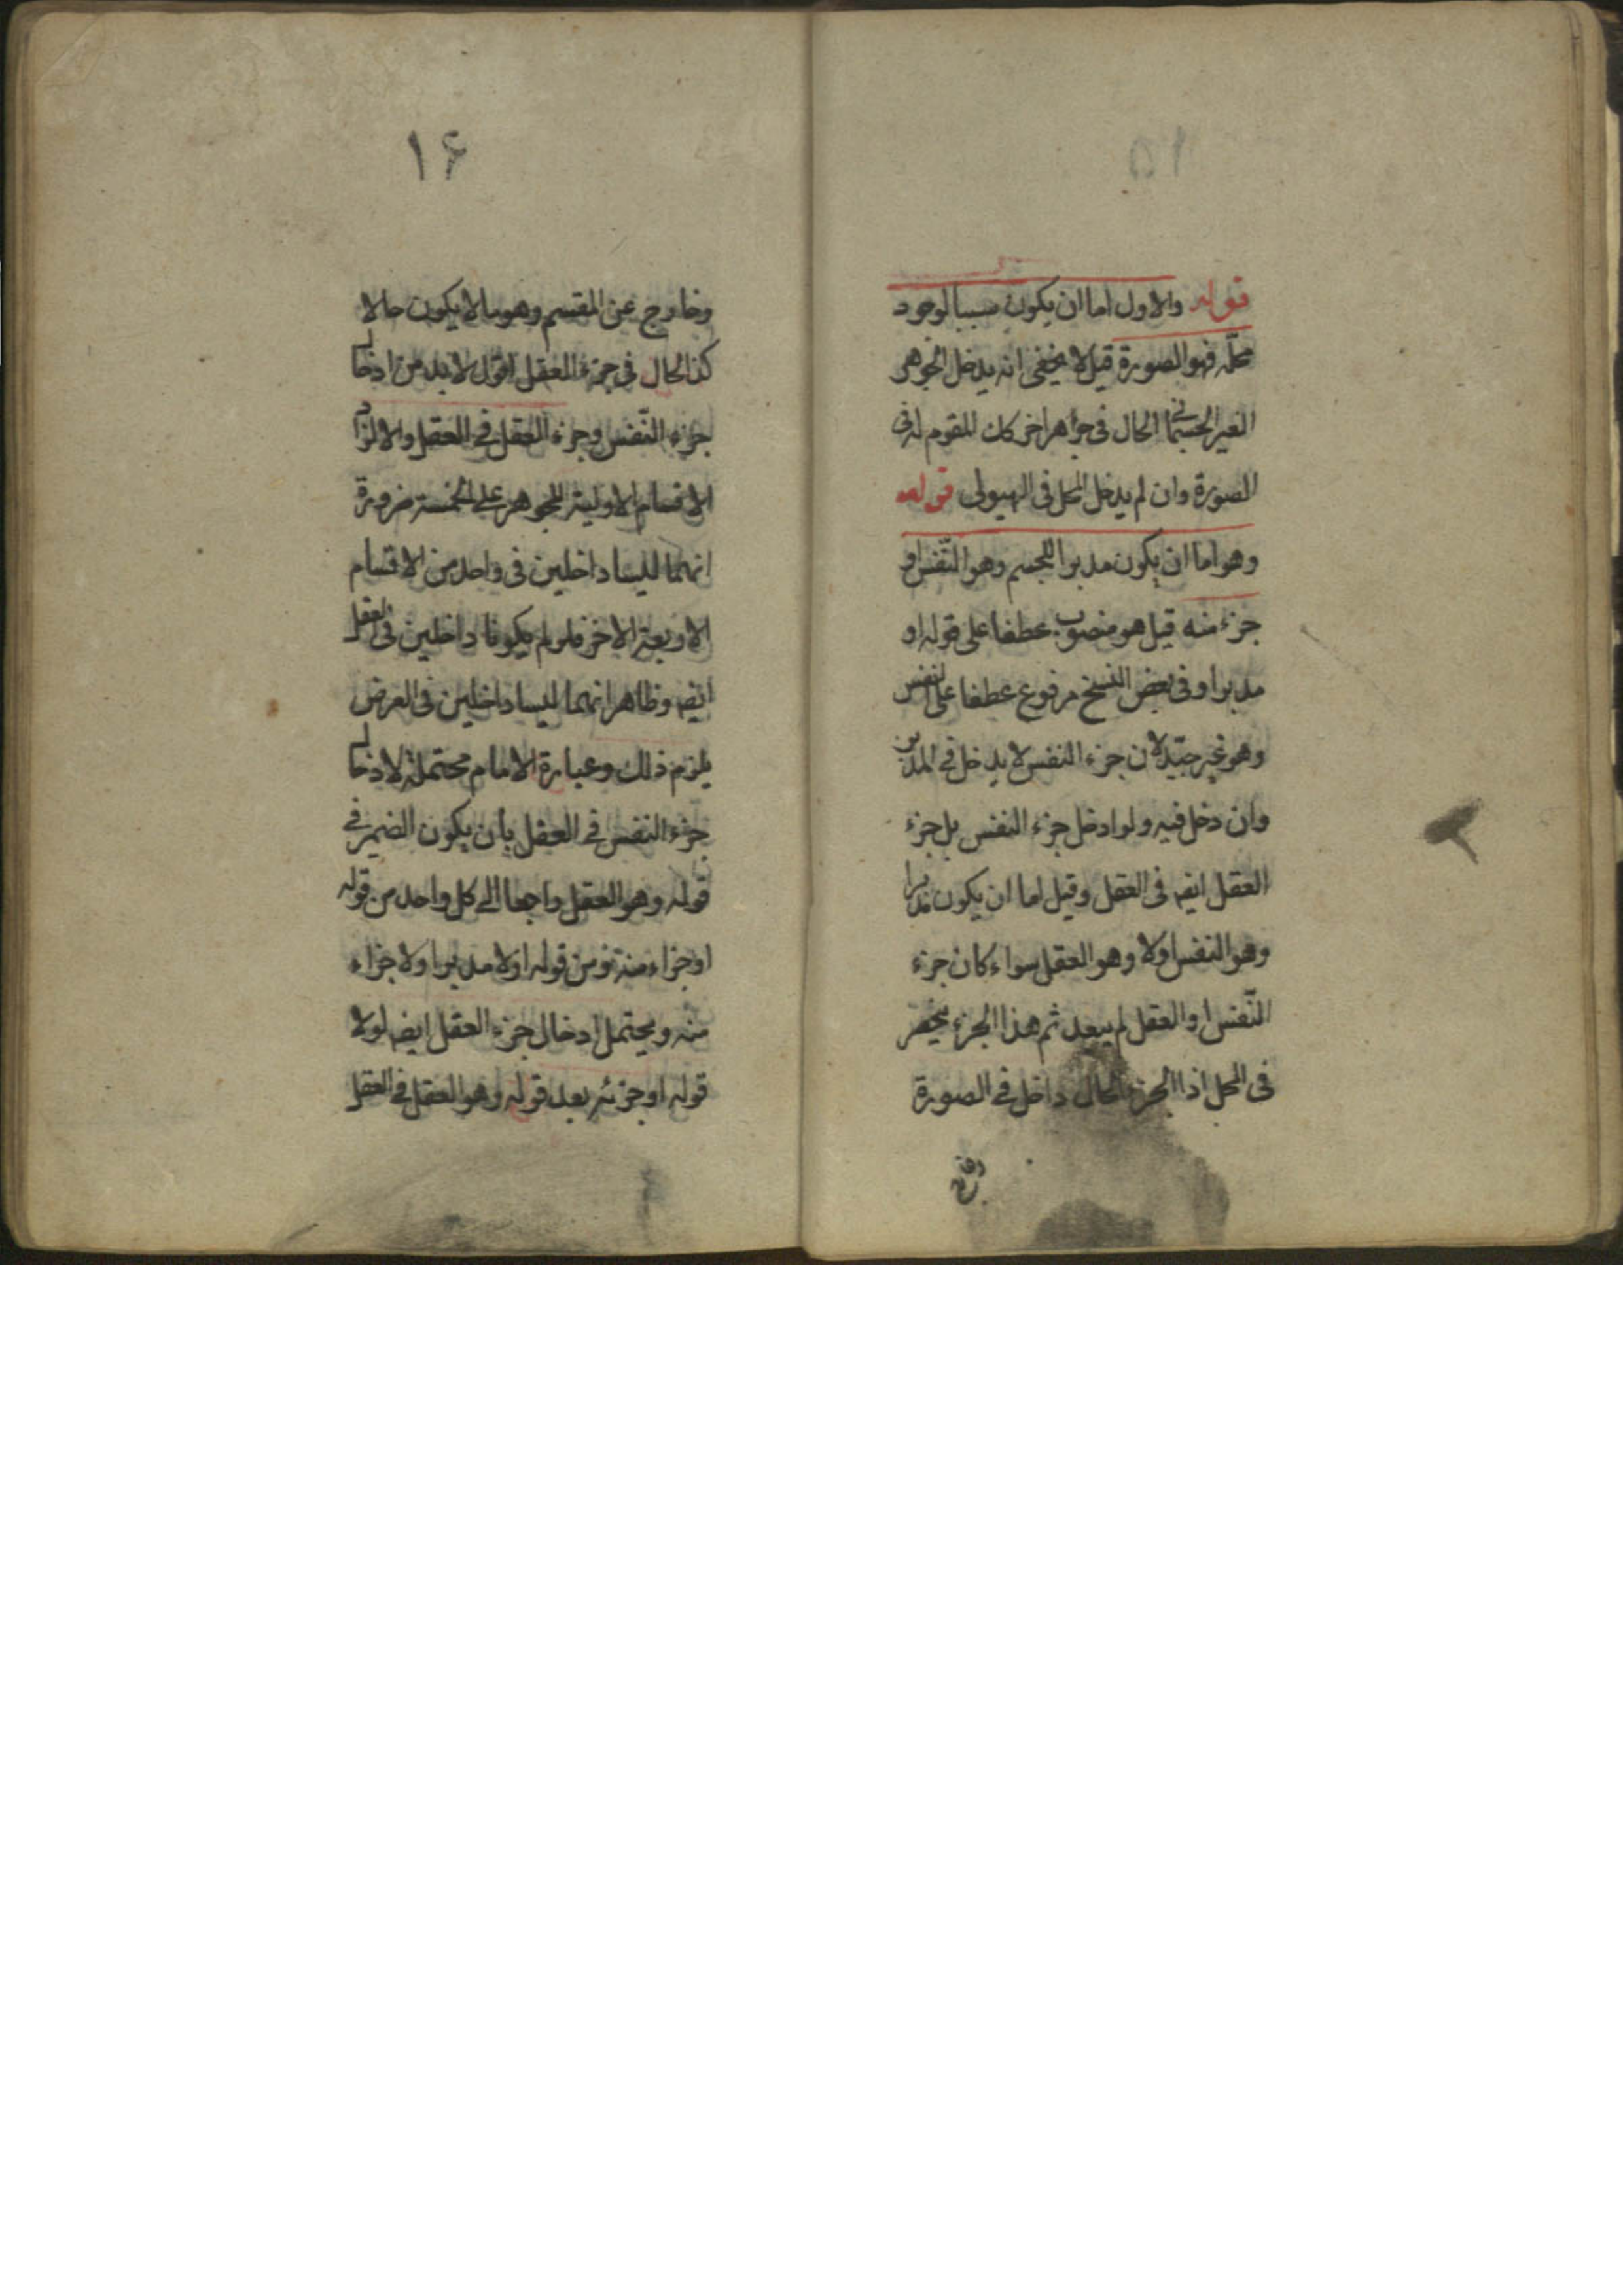 ١٥
قوله والاول اما ان يكون سببا لوجود
محلّه فهو الصورة قيل لا يخفى انه يدخل الجوهر
الغير الجسمانى الحال فى جوهر اخر كان المقوم له فى
الصورة وان لم يدخل المحل فى الهيولى قوله
وهو اما ان يكون مدبرا للجسم وهو النّفس او
جزء منه قيل هو منصوب عطفا على قوله او
مدبرا وفى بعض النسخ مرفوع عطفا على النفس
وهو غير جيّد لان جزء النفس لا يدخل فى المدبر
وان دخل فيه ولو ادخل جزء النفس بل جزء
العقل ايضه فى العقل وقيل اما ان يكون مدبرا
وهو النفس اولا وهو العقل سواء كان جزء
النّفس او العقل لم يبعد ثم هذا الجزء ينحصر
فى المحل اذا الجزء الحال داخل فى الصورة
١۶
وخارج عن المقسم وهو ما لا يكون حالا
كذا الحال فى جزء العقل اقول لا بد من ادخال
جزء النّفس وجزء العقل فى العقل والا لزاد
الاقسام الاولية للجوهر على الخمسة ضرورة
انهما ليسا داخلين فى واحد من الاقسام
الاربعة الاخر فلو لم يكونا داخلين فى العقل
ايضه وظاهر انهما ليسا داخلين فى العرض
يلزم ذلك وعبارة الامام محتملة لادخال
جزء النفس فى العقل بأن يكون الضمير فى
قوله وهو العقل راجعا الى كل واحد من قوله
او جزاء منه ومن قوله اولا مدبرا ولا جزاء
منه ويحتمل ادخال جزء العقل ايضه لولا
قوله او جزئه بعد قوله وهو العقل فى العقل